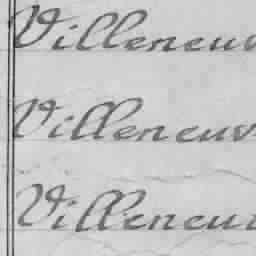 Villeneuv
Villeneuv
Villeneu